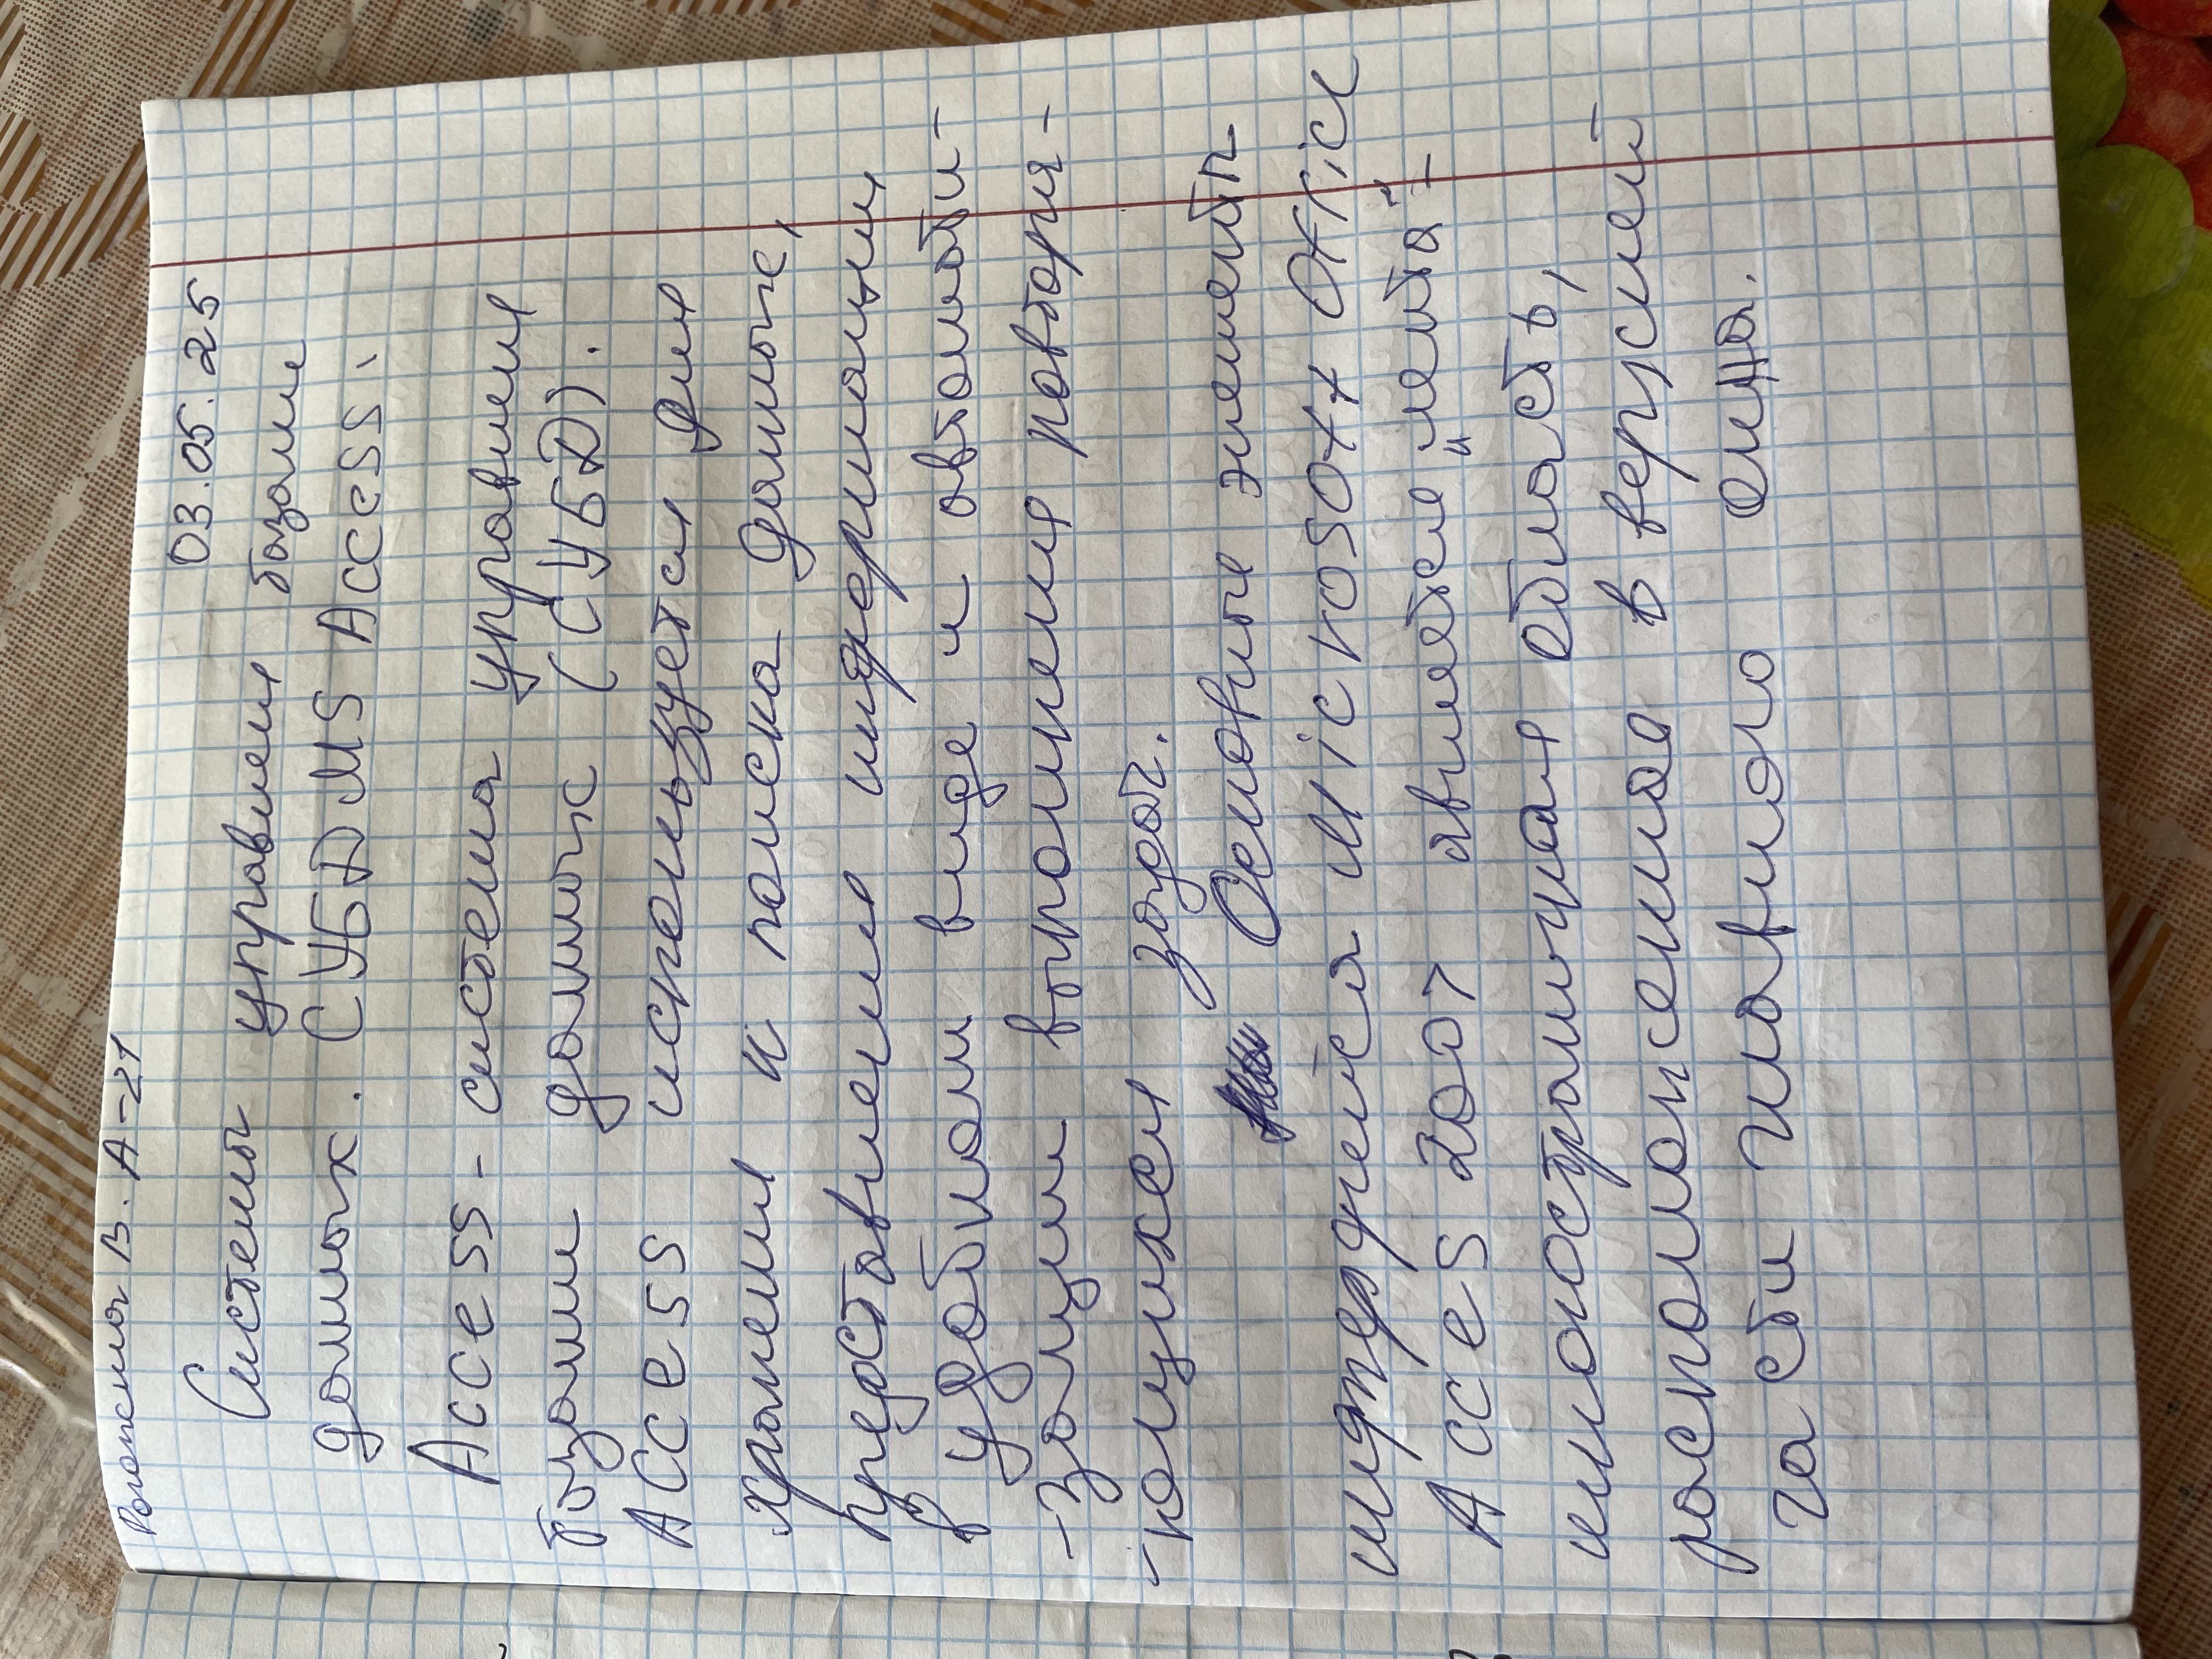 Рогожена В. А-21
03.05.25
Системы управления базами
данных. СУБД MS Access.
Access - система управления
базами данных (СУБД).
Access используется для
хранения и поиска данные,
представление информации
в удобном виде и автомати-
-зации выполнения повторя-
-ющихся задач.
Основные элементы
интерфейса Microsoft Office
Access 2007 является "лента" -
многостраничная область,
расположенная в версией
части главного окна.